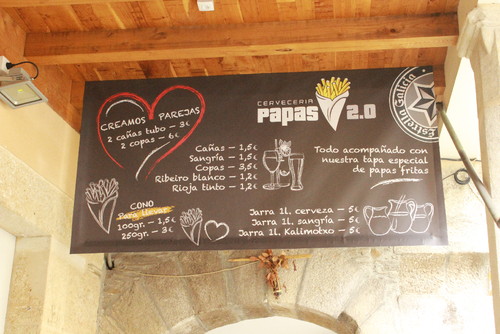 CREAMOS PAREJAS
2 cañas tubo – 3€
2 copas – 6€
CERVECERIA
PAPAS 2.0
Estrella Galicia
Cañas – 1,5€
Sangría – 1,5€
Copas – 3,5€
Ribeiro blanco – 1,2€
Rioja tinto – 1,2€
Todo acompañado con
nuestra tapa especial
de papas fritas
CONO
Para llevar
100gr. – 1,5€
250gr. – 3€
Jarra 1l. cerveza – 5€
Jarra 1l. sangría – 5€
Jarra 1l. Kalimotxo – 5€